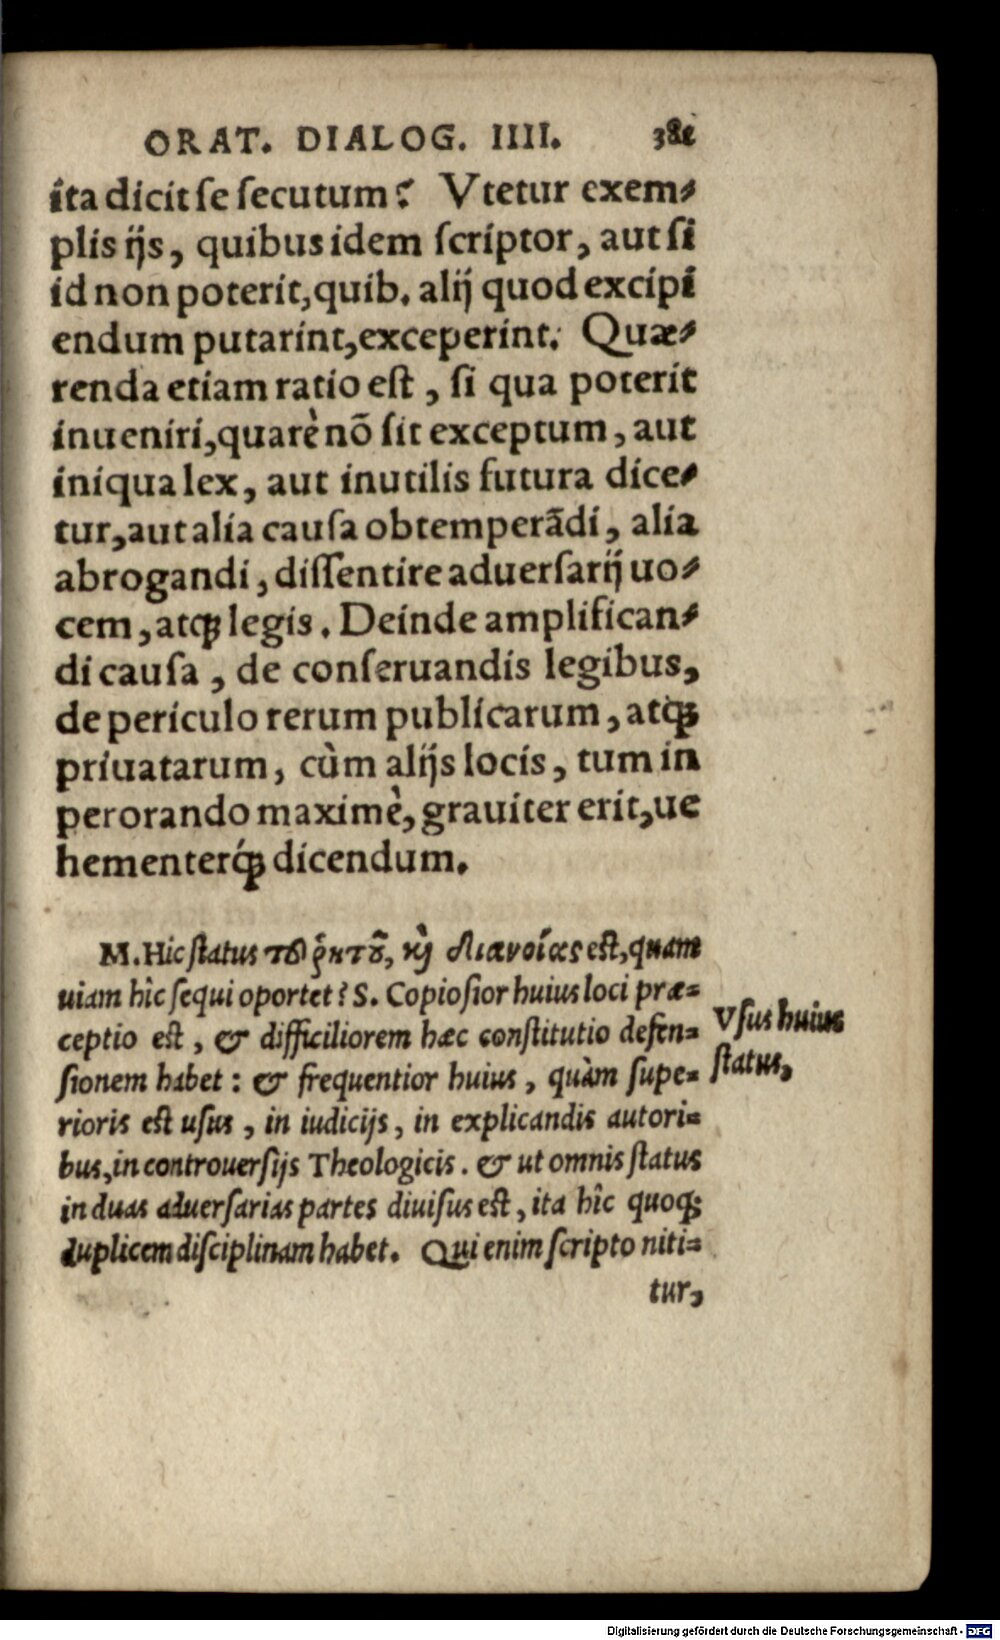 ORAT. DIALOG. IIII.
ita dicit se secutum? Vtetur exem-
plis ijs, quibus idem scriptor, aut si
id non poterit, quib. alij quod excipi
endum putarint, exceperint. Quæ-
renda etiam ratio est, si qua poterit
inueniri, quarè nõ sit exceptum, aut
iniqua lex, aut inutilis futura dice-
tur, aut alia causa obtemperãdi, alia
abrogandi, dissentire aduersarij uo-
cem, atq; legis. Deinde amplifican-
di causa, de conseruandis legibus,
de periculo rerum publicarum, atq;
priuatarum, cùm alijs locis, tum in
perorando maximè, grauiter erit, ue
hementerq́; dicendum.
M. Hic status τοῦ ῥητοῦ, καὶ διανοίας est, quam
uiam hîc sequi oportet? S. Copiosior huius loci præ-
ceptio est, & difficiliorem hæc constitutio defen-
sionem habet: & frequentior huius, quàm supe-
rioris est usus, in iudicijs, in explicandis autori-
bus, in controuersijs Theologicis. & ut omnis status
in duas aduersarias partes diuisus est, ita hîc quoq;
duplicem disciplinam habet. Qui enim scripto niti-
tur,
Vsus huius
status,
Digitalisierung gefördert durch die Deutsche Forschungsgemeinschaft - DFG